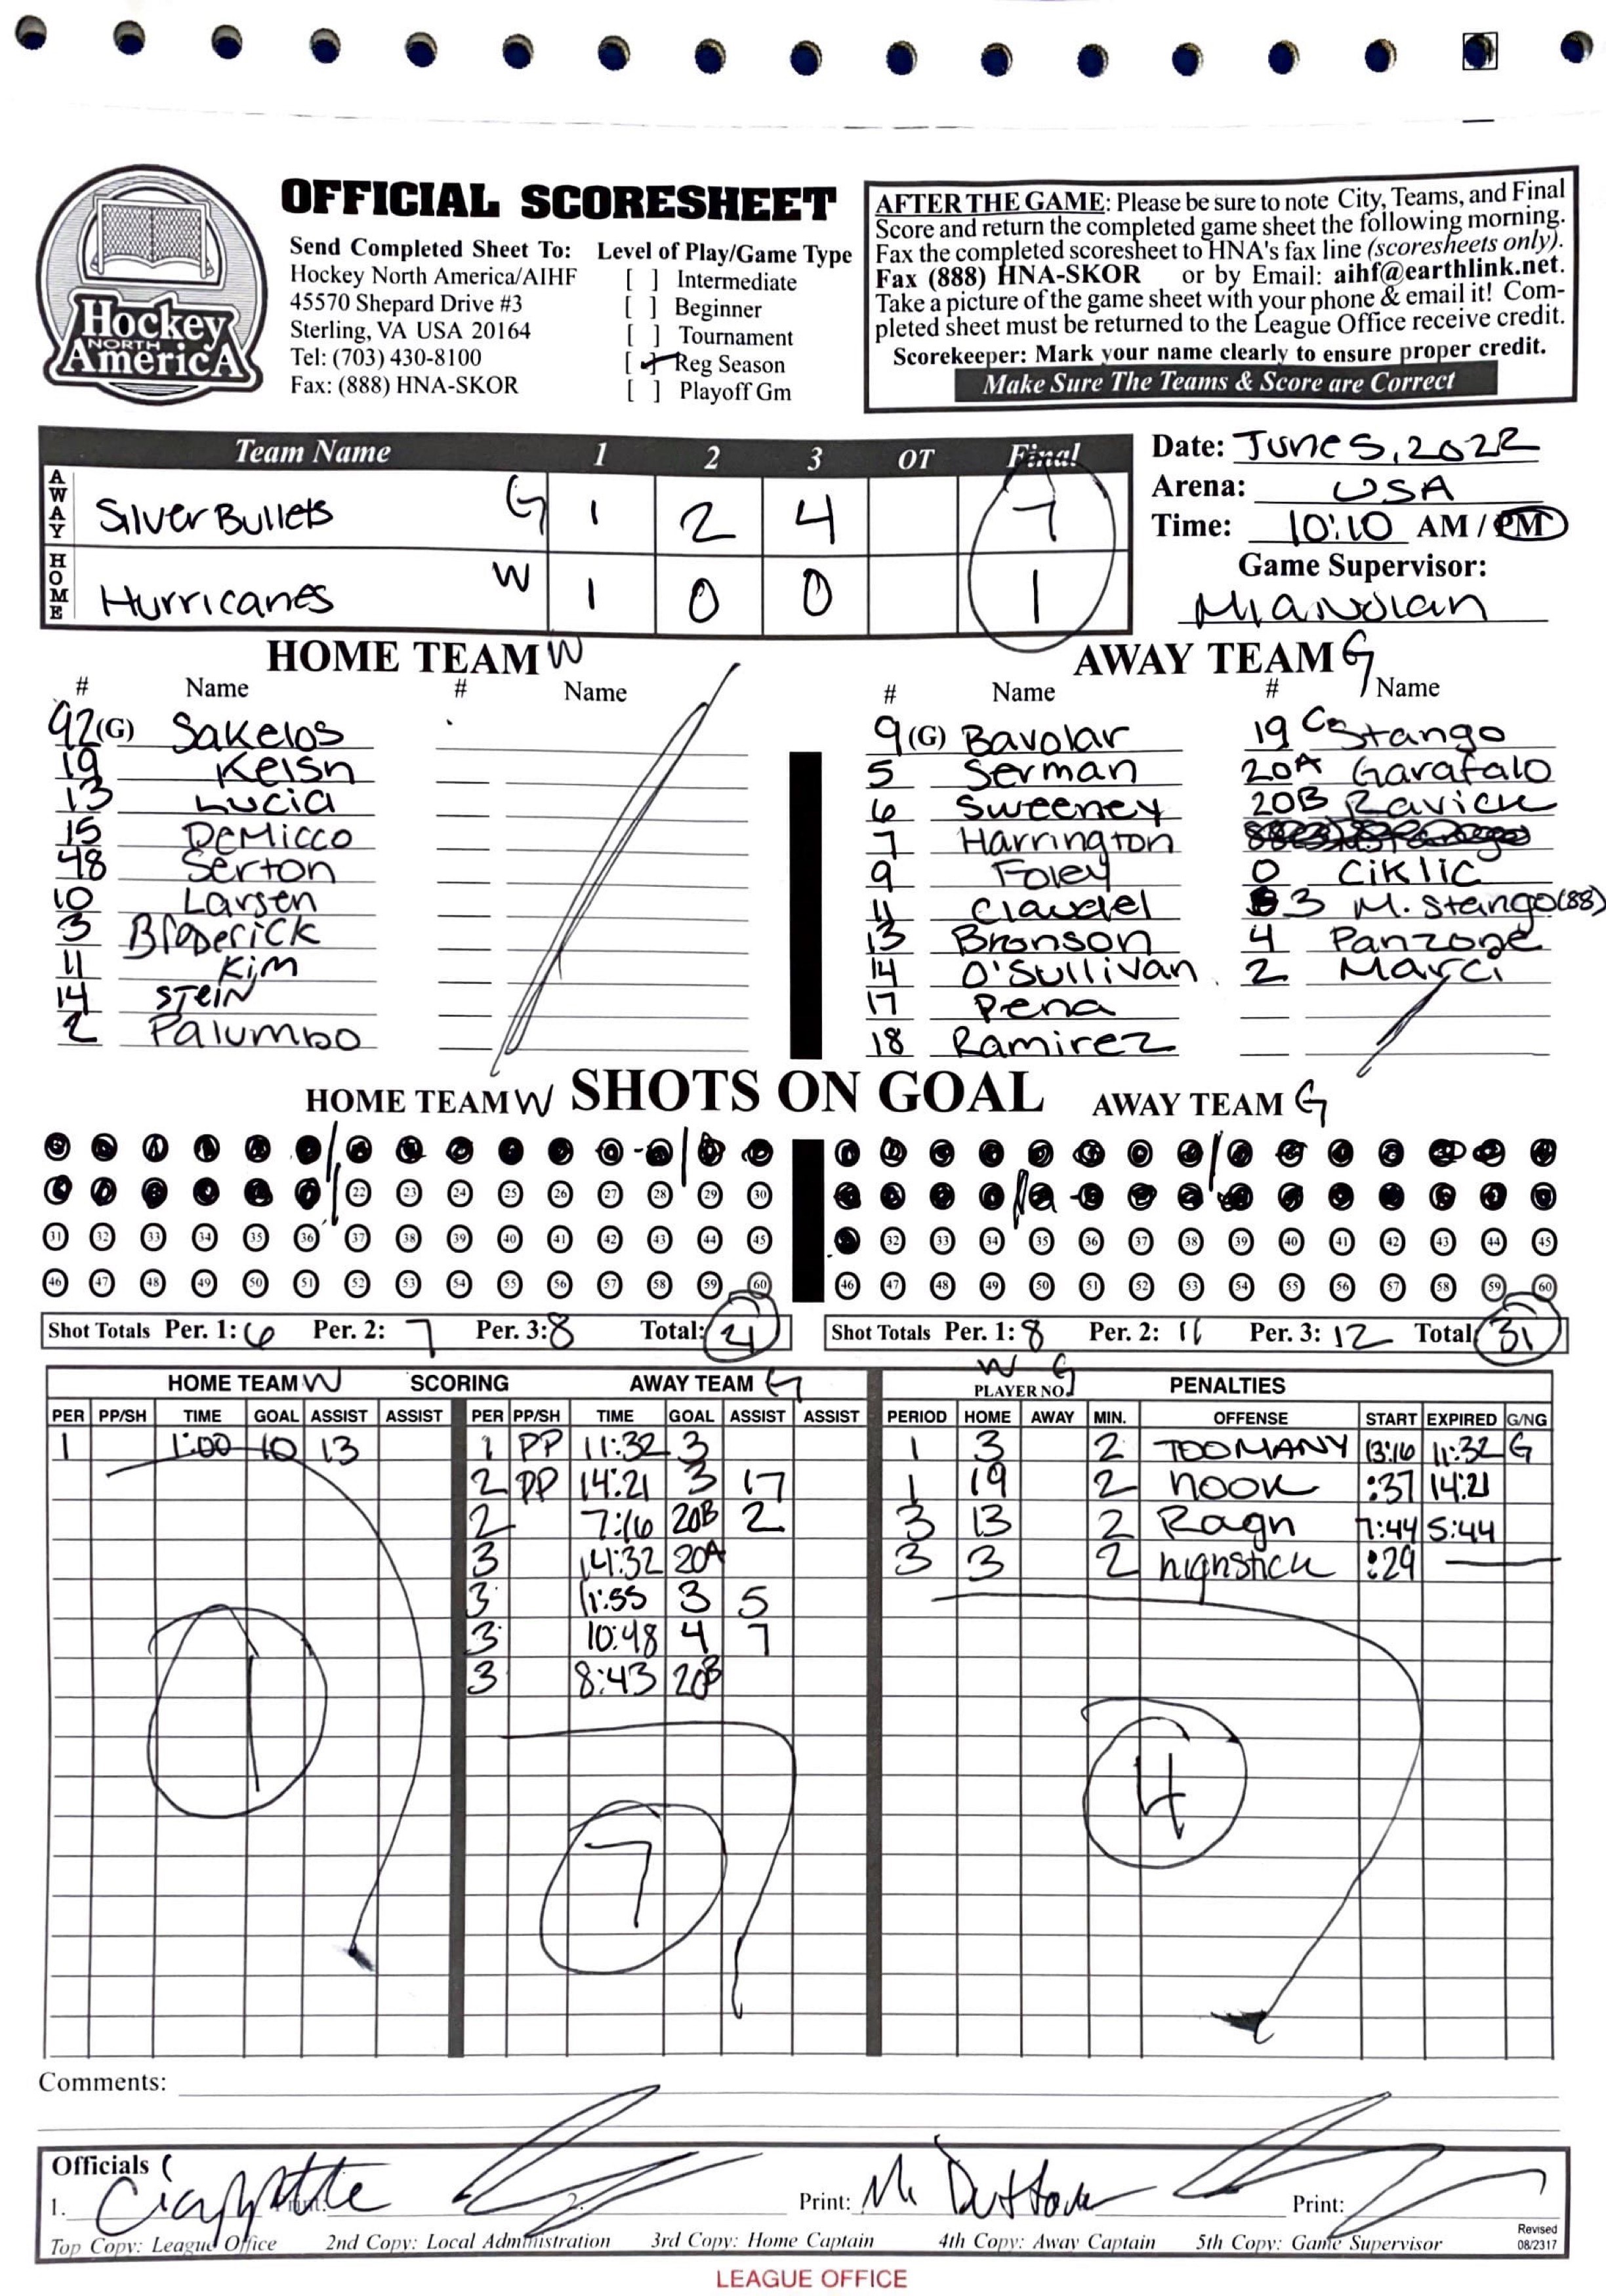 Hockey
NORTH
AmericA
OFFICIAL SCORESHEET
Send Completed Sheet To:
Hockey North America/AIHF
45570 Shepard Drive #3
Sterling, VA USA 20164
Tel: (703) 430-8100
Fax: (888) HNA-SKOR
Level of Play/Game Type
[ ] Intermediate
[ ] Beginner
[ ] Tournament
[✓] Reg Season
[ ] Playoff Gm
AFTER THE GAME: Please be sure to note City, Teams, and Final
Score and return the completed game sheet the following morning.
Fax the completed scoresheet to HNA's fax line (scoresheets only).
Fax (888) HNA-SKOR or by Email: aihf@earthlink.net.
Take a picture of the game sheet with your phone & email it! Com-
pleted sheet must be returned to the League Office receive credit.
Scorekeeper: Mark your name clearly to ensure proper credit.
Make Sure The Teams & Score are Correct
Team Name 1 2 3 OT Final
AWAY Silver Bullets G 1 2 4 7
HOME Hurricanes W 1 0 0 1
Date: June 5, 2022
Arena: USA
Time: 10:10 AM / PM
Game Supervisor:
Mia Nolan
HOME TEAM W
# Name # Name
92 (G) Sakelos
19 Keish
13 Lucia
15 DeMicco
48 Serton
10 Larsen
3 Broderick
11 Kim
14 Stein
2 Palumbo
AWAY TEAM G
# Name # Name
9 (G) Bavolar 19 C Stango
5 Serman 20A Garafalo
6 Sweeney 20B Ravich
7 Harrington
9 Foley 0 Ciklic
11 Claudel 3 M. Stango (88)
13 Bronson 4 Panzone
14 O'Sullivan 2 Marci
17 Pena
18 Ramirez
HOME TEAM W SHOTS ON GOAL AWAY TEAM G
22 23 24 25 26 27 28 29 30
31 32 33 34 35 36 37 38 39 40 41 42 43 44 45
46 47 48 49 50 51 52 53 54 55 56 57 58 59 60
32 33 34 35 36 37 38 39 40 41 42 43 44 45
46 47 48 49 50 51 52 53 54 55 56 57 58 59 60
Shot Totals Per. 1: 6 Per. 2: 7 Per. 3: 8 Total: 21
Shot Totals Per. 1: 8 Per. 2: 11 Per. 3: 12 Total 31
HOME TEAM W SCORING AWAY TEAM G
PER PP/SH TIME GOAL ASSIST ASSIST
1 1:00 10 13
1
PER PP/SH TIME GOAL ASSIST ASSIST
1 PP 11:32 3
2 PP 14:21 3 17
2 7:16 20B 2
3 14:32 20A
3 11:55 3 5
3 10:48 4 7
3 8:43 20B
7
W G
PLAYER NO. PENALTIES
PERIOD HOME AWAY MIN. OFFENSE START EXPIRED G/NG
1 3 2 TOO MANY 13:16 11:32 G
1 19 2 hook :37 14:21
3 13 2 Ragh 7:44 5:44
3 3 2 highstick :29
4
Comments:
Officials
1. Print: 2. Print: Print:
Top Copy: League Office 2nd Copy: Local Administration 3rd Copy: Home Captain 4th Copy: Away Captain 5th Copy: Game Supervisor
Revised
08/2317
LEAGUE OFFICE